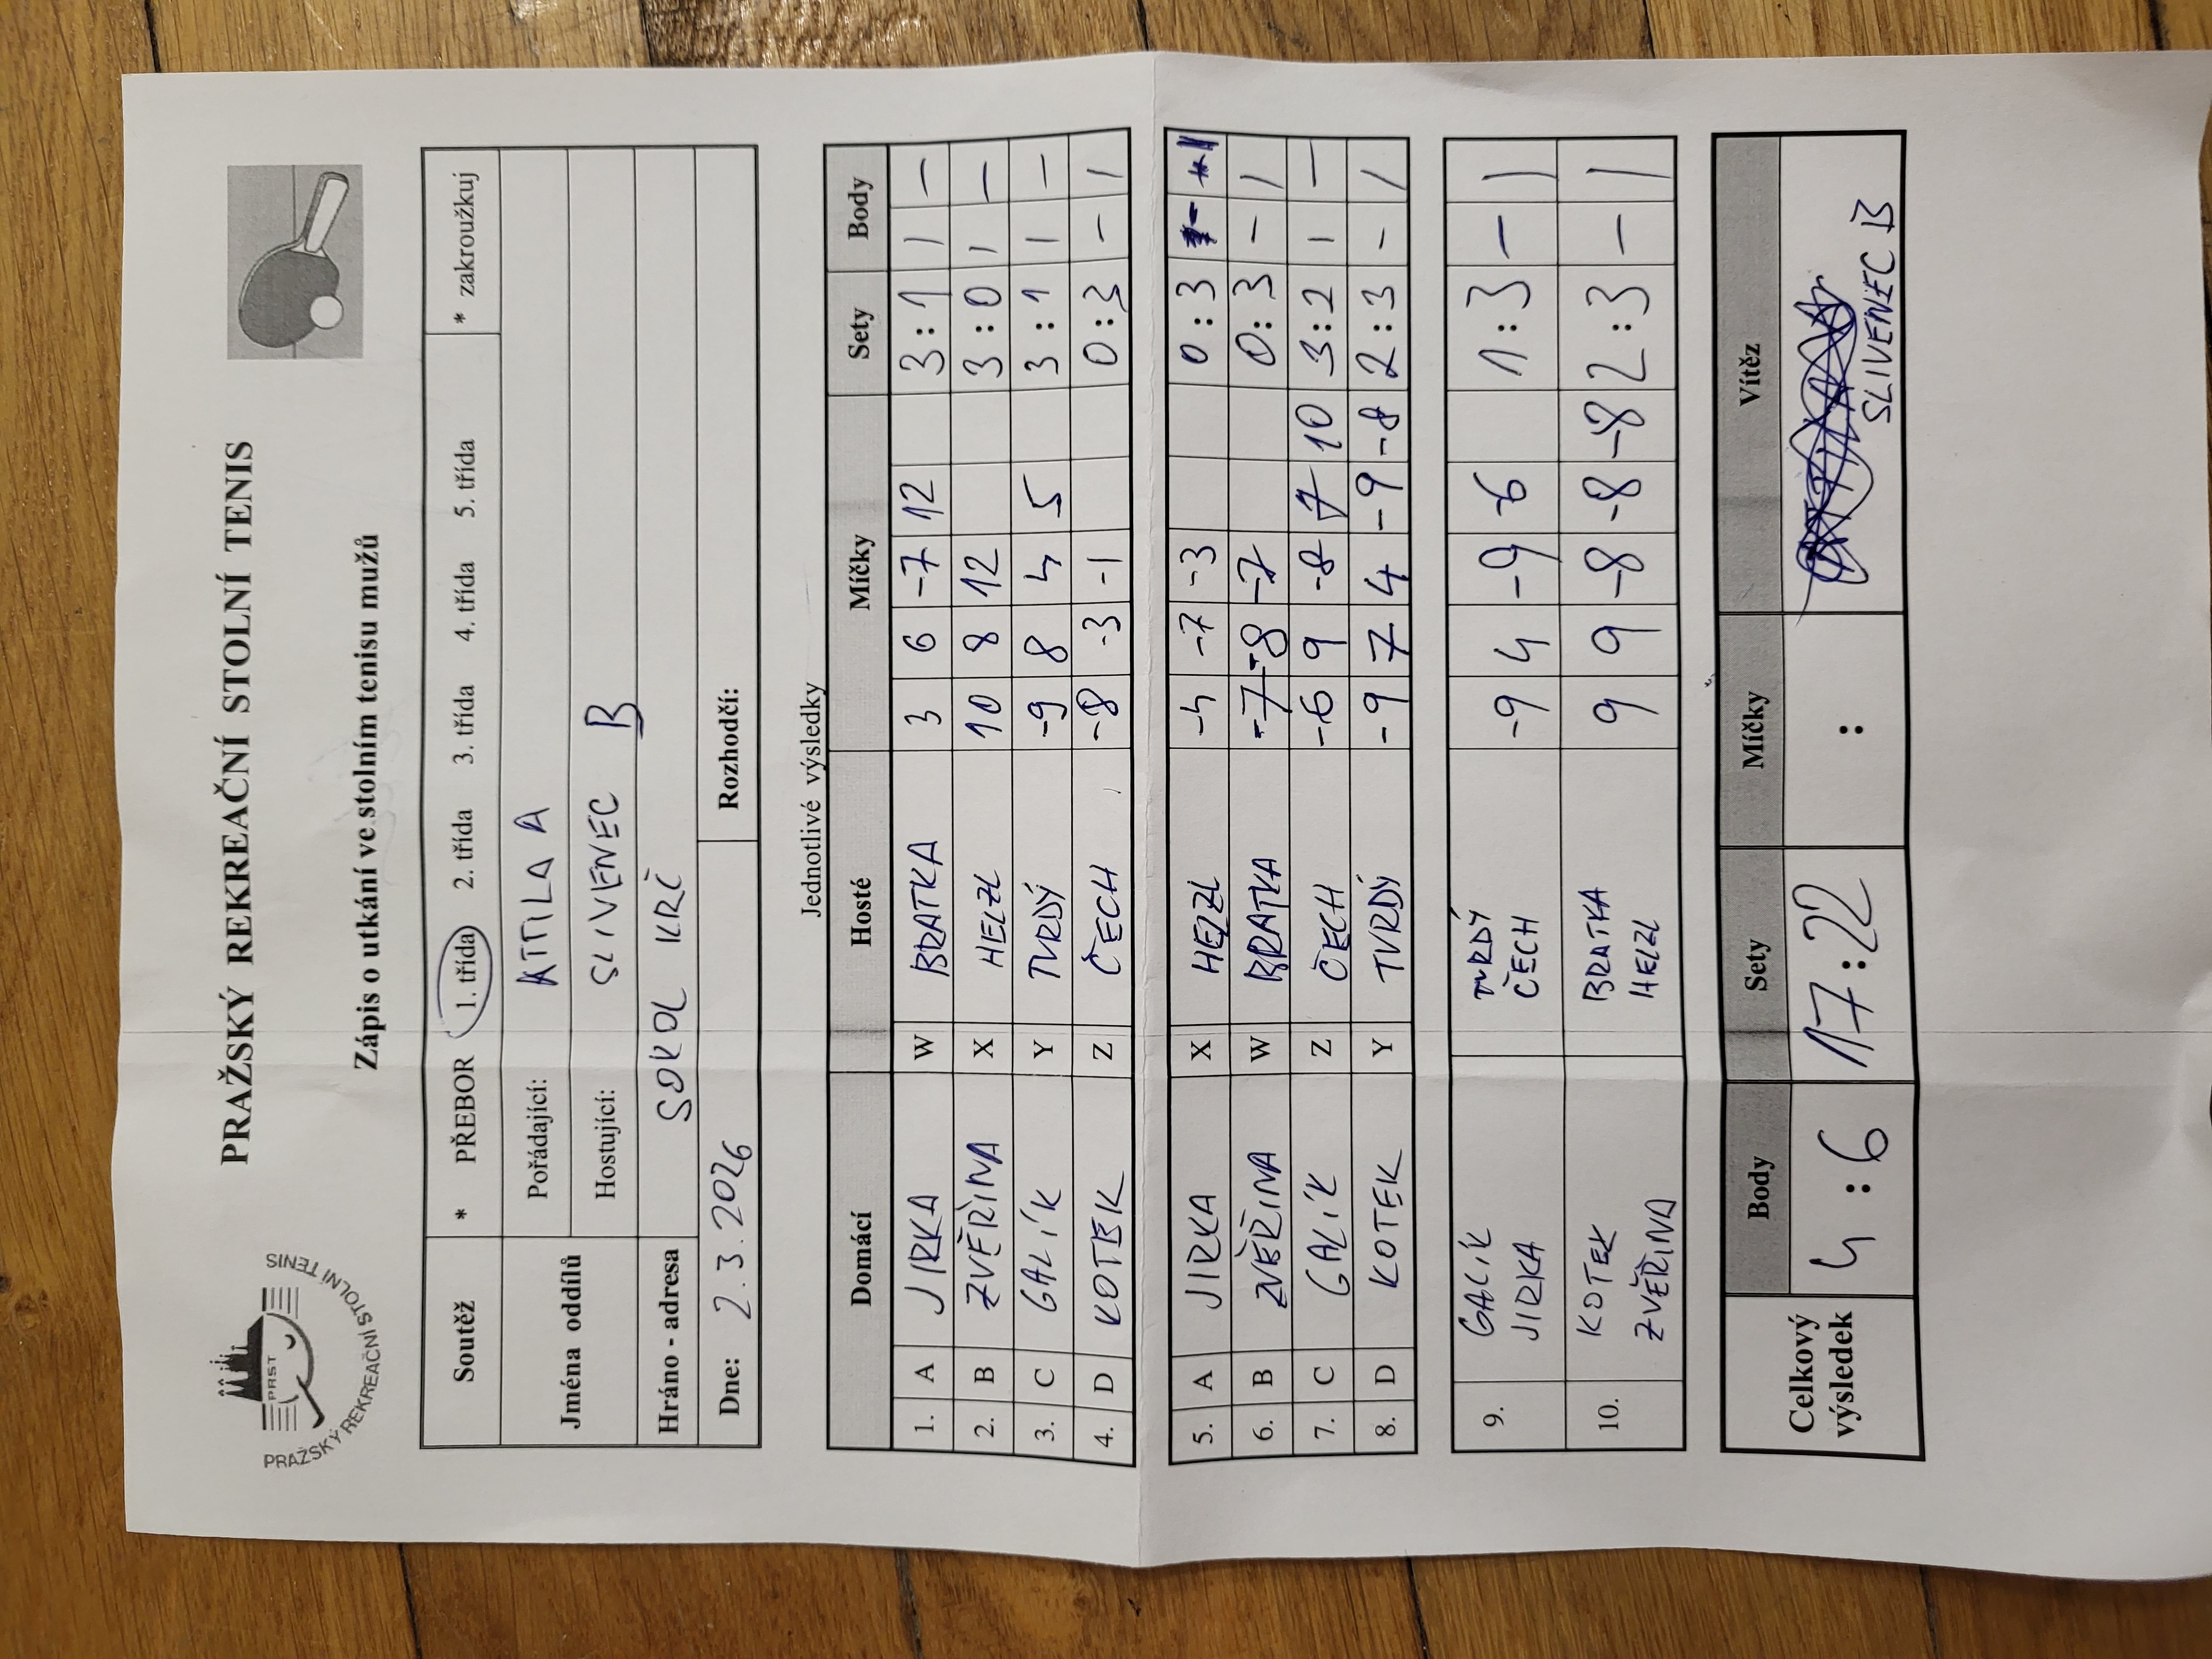 PRAŽSKÝ REKREAČNÍ STOLNÍ TENIS
PRST
PRAŽSKÝ REKREAČNÍ STOLNÍ TENIS
Zápis o utkání ve stolním tenisu mužů
Soutěž * PŘEBOR 1. třída 2. třída 3. třída 4. třída 5. třída * zakroužkuj
Jména oddílů Pořádající: ATTILA A
Hostující: SLIVENEC B
Hráno - adresa SOKOL KRČ
Dne: 2.3.2026 Rozhodčí:
Jednotlivé výsledky
Domácí Hosté Míčky Sety Body
1. A JIRKA W BRATKA 3 6 -7 12 3:1 1 -
2. B ZVĚŘINA X HELZL 10 8 12 3:0 1 -
3. C GALÍK Y TVRDÝ -9 8 4 5 3:1 1 -
4. D KOTEK Z ČECH -8 -3 -1 0:3 - 1
5. A JIRKA X HELZL -4 -7 -3 0:3 - 1
6. B ZVĚŘINA W BRATKA -7 -8 -7 0:3 - 1
7. C GALÍK Z ČECH -6 9 -8 7 10 3:2 1 -
8. D KOTEK Y TVRDÝ -9 7 4 -9 -8 2:3 - 1
9. GALÍK TVRDÝ -9 4 -9 -6 1:3 - 1
JIRKA ČECH
10. KOTEK BRATKA 9 9 -8 -8 -8 2:3 - 1
ZVĚŘINA HELZL
Celkový výsledek Body Sety Míčky Vítěz
4:6 17:22 : SLIVENEC B